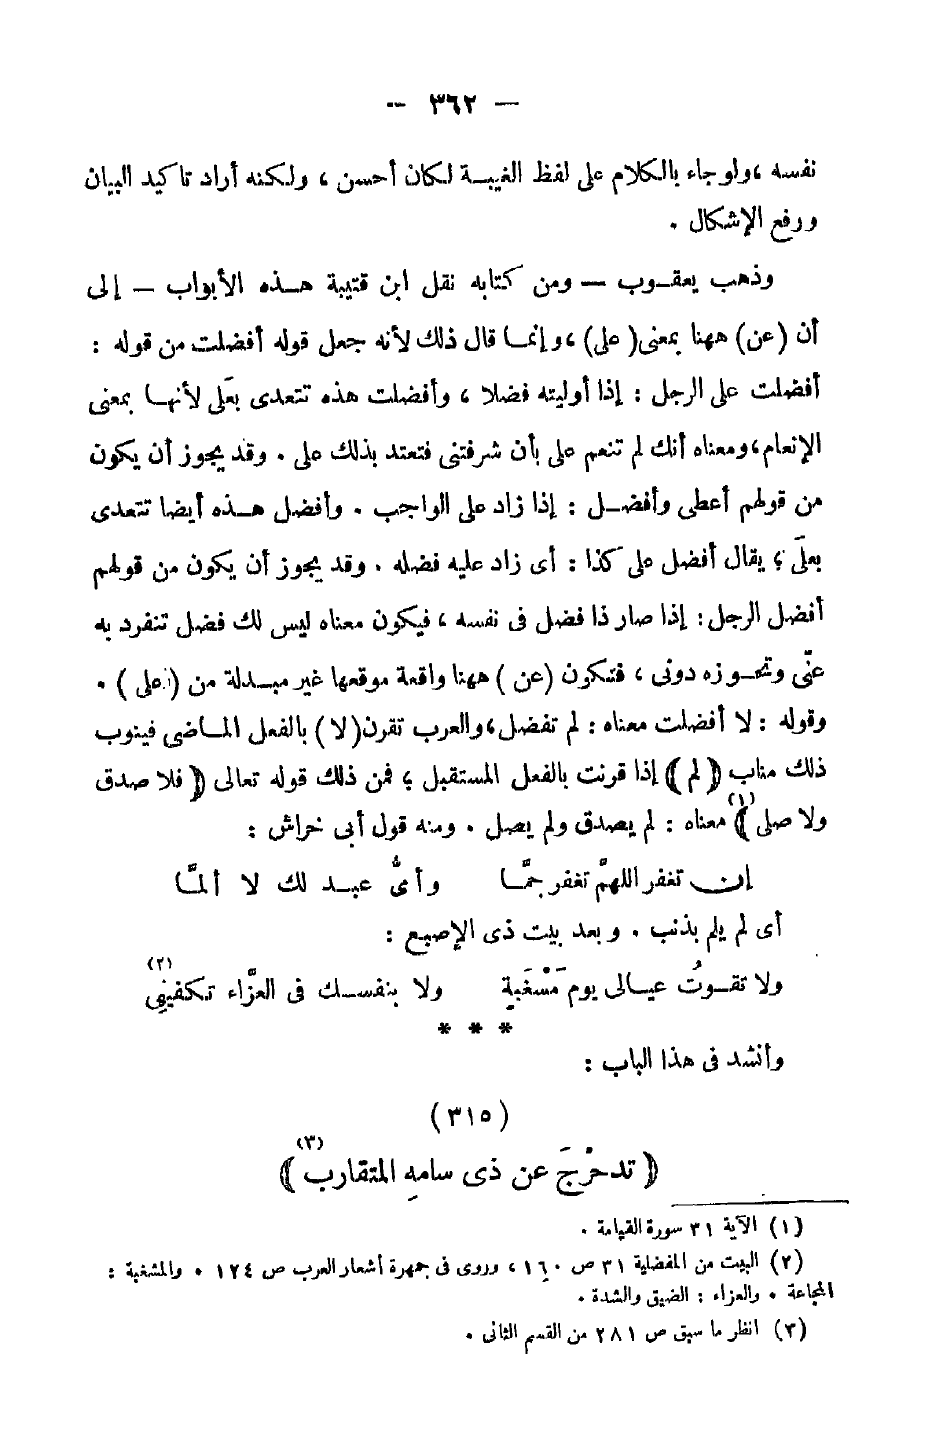 — ٣٦٢ —
نفسه ، ولو جاء بالكلام على لفظ الغيبة لكان أحسن ، ولكنه أراد تاكيد البيان
ورفع الإشكال .
وذهب يعقوب — ومن كتابه نقل ابن قتيبة هذه الأبواب — إلى
أن (عن) ههنا بمعنى (على) ، وإنما قال ذلك لأنه جعل قوله أفضلت من قوله :
أفضلت على الرجل : إذا أوليته فضلا ، وأفضلت هذه تتعدى بعَلى لأنها بمعنى
الإنعام ، ومعناه أنك لم تنعم على بأن شرفتنى فتعتد بذلك على . وقد يجوز أن يكون
من قولهم أعطى وأفضل : إذا زاد على الواجب . وأفضل هذه أيضا تتعدى
بعلَى ؛ يقال أفضل على كذا : أى زاد عليه فضله . وقد يجوز أن يكون من قولهم
أفضل الرجل : إذا صار ذا فضل فى نفسه ، فيكون معناه ليس لك فضل تنفرد به
عنّى وتحوزه دونى ، فتكون (عن) ههنا واقعة موقعها غير مبدلة من (على) .
وقوله : لا أفضلت معناه : لم تفضل ، والعرب تقرن (لا) بالفعل الماضى فينوب
ذلك مناب ((لم)) إذا قرنت بالفعل المستقبل ؛ فمن ذلك قوله تعالى ((فلا صدق
ولا صلى))(١) معناه : لم يصدق ولم يصل . ومنه قول أبى خراش :
إن تغفر اللهمَّ تغفر جمَّا وأىُّ عبد لك لا ألمَّا
أى لم يلم بذنب . وبعد بيت ذى الإصبع :
ولا تقوتُ عيالى يومَ مَسْغَبةٍ ولا بنفسك فى العزَّاء تكفينِى(٢)
* * *
وأنشد فى هذا الباب :
(٣١٥)
((تدحْرجَ عن ذى سامهِ المتقارب))(٣)
(١) الآية ٣١ سورة القيامة .
(٢) البيت من المفضلية ٣١ ص ١٦٠ ، وروى فى جمهرة أشعار العرب ص ١٢٤ . والمشغبة :
المجاعة . والعزاء : الضيق والشدة .
(٣) انظر ما سبق ص ٢٨١ من القسم الثانى .